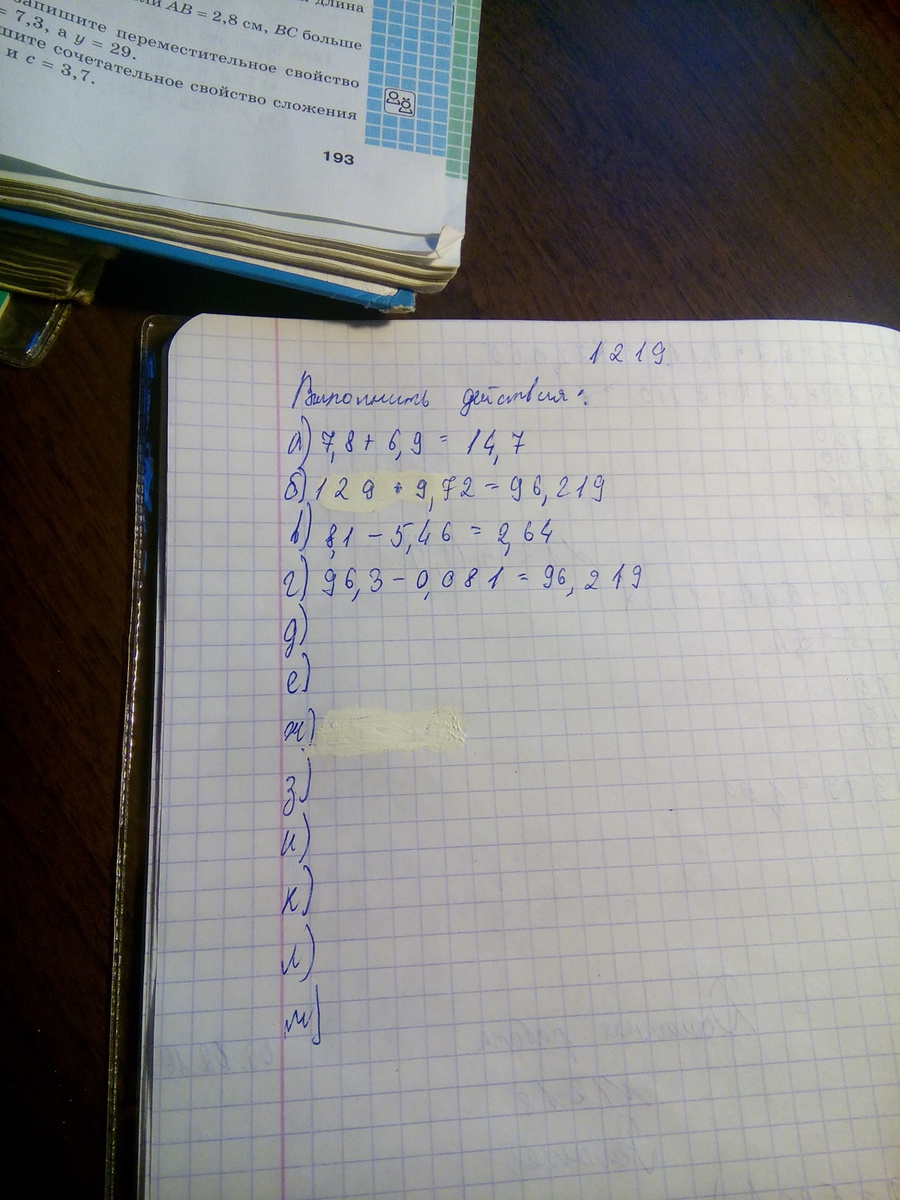 длина
AB = 2,8 см, BC больше
запишите переместительное свойство
= 7,3, а y = 29.
шите сочетательное свойство сложения
и c = 3,7.
193
1219
Выполнить действия:
а) 7,8 + 6,9 = 14,7
б) 129 + 9,72 = 96,219
в) 8,1 - 5,46 = 2,64
г) 96,3 - 0,081 = 96,219
д)
е)
ж)
з)
и)
к)
л)
м)